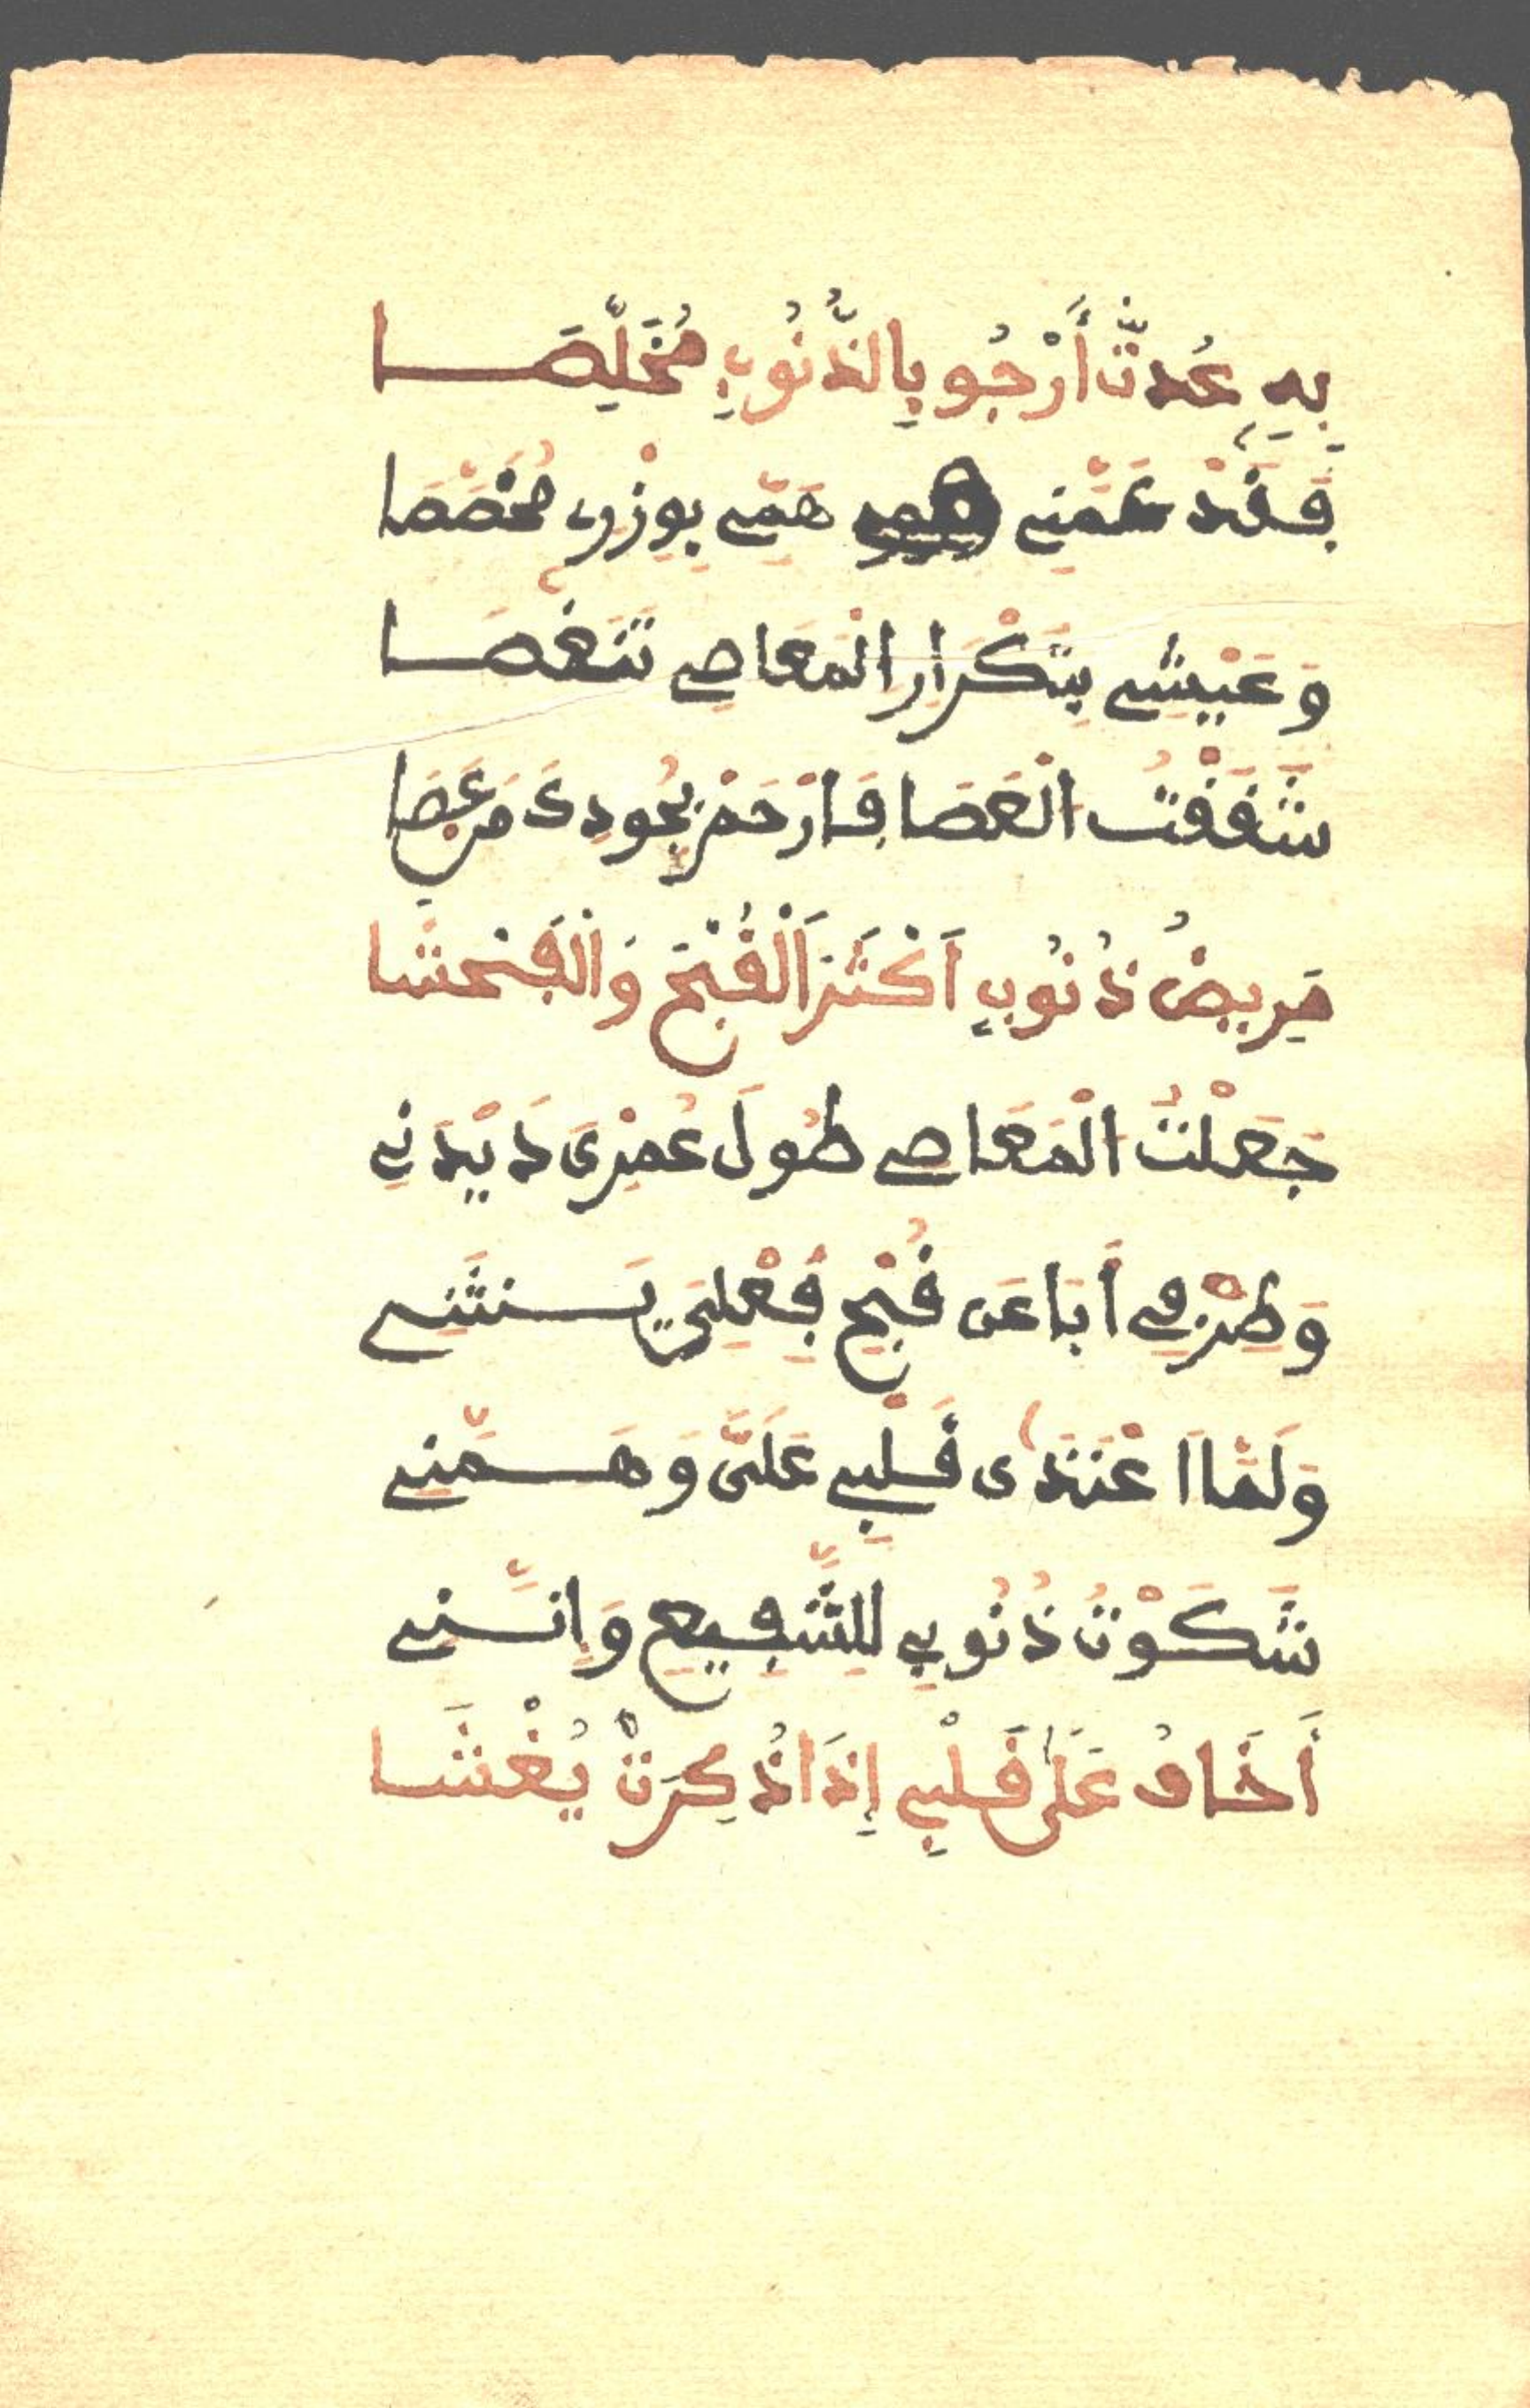 بِهِ عُدتُّ أَرْجُو بِالذُّنُوبِ مُخَلِّصَا
فَقَدْ عَمَّنِي هَمِّي بِوِزْرٍ مُخَصَّصَا
وَعَيْشِي بِتَكْرَارِ الْمَعَاصِي تَنَغَّصَا
شَقَقْتُ الْعَصَا فَارْحَمْ بِجُودِكَ مَنْ عَصَا
مَرِيضُ ذُنُوبٍ أَكْثَرَ الْقُبْحَ وَالْفَحْشَا
جَعَلْتُ الْمَعَاصِي طُولَ عُمْرِيَ دَيْدَنِي
وَطَرْفِي أَبَا عَن قُبْحِ فِعْلِيَ يَنثَنِي
وَلَمَّا اعْتَدَى قَلْبِي عَلَيَّ وَهَمَّنِي
شَكَوْتُ ذُنُوبِي لِلشَّفِيعِ وَإِنَّنِي
أَخَافُ عَلَى قَلْبِي إِذَا ذُكِرَتْ يُغْشَا